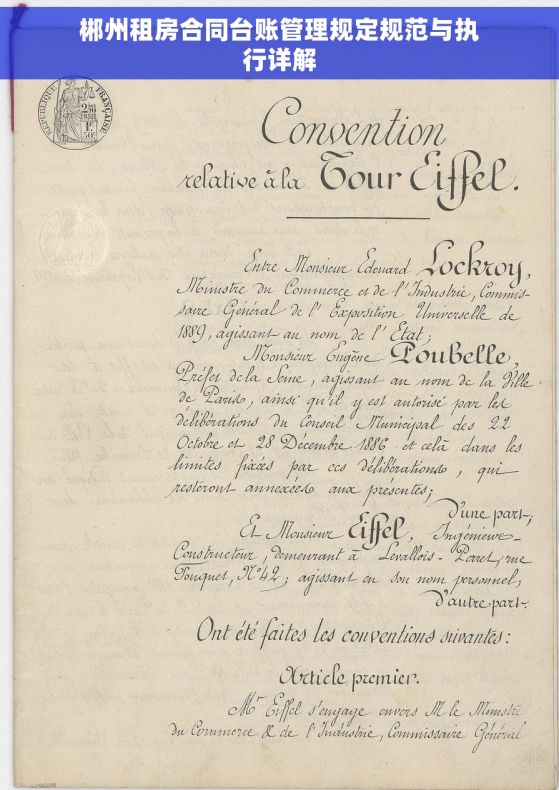 郴州租房合同台账管理规定规范与执
行详解
RÉPUBLIQUE FRANÇAISE
Convention
relative à la Tour Eiffel.
Entre Monsieur Edouard Lockroy,
Ministre du Commerce et de l'Industrie, Commis-
saire Général de l'Exposition Universelle de
1889, agissant au nom de l'Etat;
Monsieur Eugène Poubelle,
Préfet de la Seine, agissant au nom de la Ville
de Paris, ainsi qu'il y est autorisé par les
délibérations du Conseil Municipal des 22
Octobre et 28 Décembre 1886 et celà dans les
limites fixées par ces délibérations, qui
resteront annexées aux présentes;
d'une part;
Et Monsieur Eiffel, Ingénieur-
Constructeur, demeurant à Levallois-Perret, rue
Fouquet, N° 42; agissant en son nom personnel;
d'autre part.
Ont été faites les conventions suivantes:
Article premier.
Mr Eiffel s'engage envers M le Ministre
du Commerce & de l'Industrie, Commissaire Général